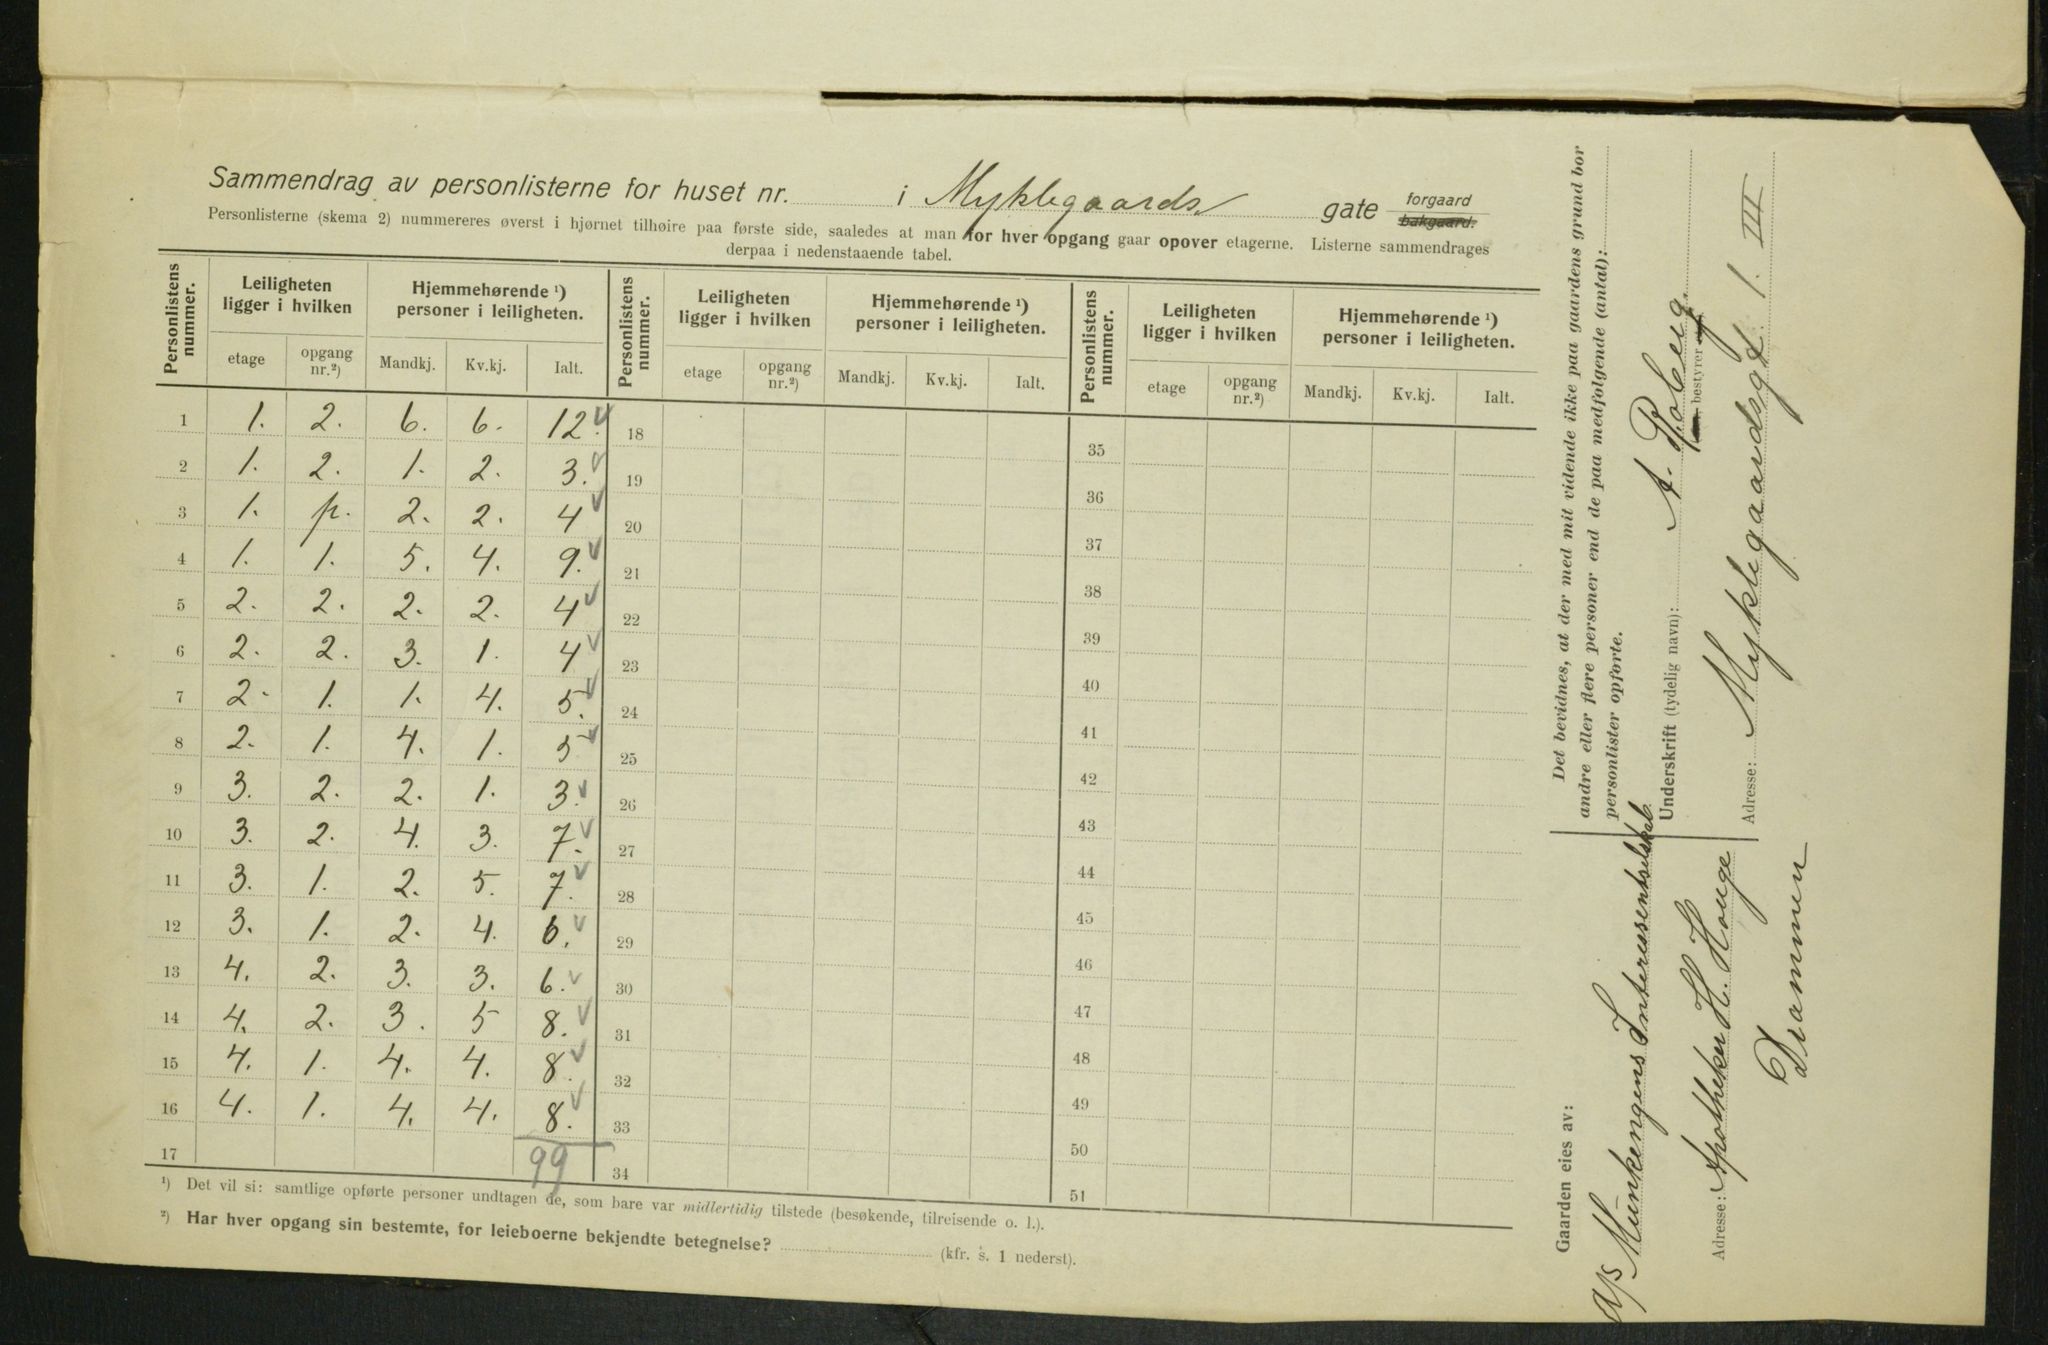 Sammendrag av personlisterne for huset nr. i Myklegaards gate forgaard bakgaard.
Personlisterne (skema 2) nummereres øverst i hjørnet tilhøire paa første side, saaledes at man for hver opgang gaar opover etagerne. Listerne sammendrages
derpaa i nedenstaaende tabel.
Personlistens nummer. Leiligheten ligger i hvilken Hjemmehørende ¹) personer i leiligheten. Personlistens nummer. Leiligheten ligger i hvilken Hjemmehørende ¹) personer i leiligheten. Personlistens nummer. Leiligheten ligger i hvilken Hjemmehørende ¹) personer i leiligheten.
etage opgang nr.²) Mandkj. Kv.kj. Ialt. etage opgang nr.²) Mandkj. Kv.kj. Ialt. etage opgang nr.²) Mandkj. Kv.kj. Ialt.
1 1. 2. 6. 6. 12. 18 35
2 1. 2. 1. 2. 3. 19 36
3 1. p. 2. 2. 4 20 37
4 1. 1. 5. 4. 9. 21 38
5 2. 2. 2. 2. 4 22 39
6 2. 2. 3. 1. 4 23 40
7 2. 1. 1. 4. 5. 24 41
8 2. 1. 4. 1. 5 25 42
9 3. 2. 2. 1. 3. 26 43
10 3. 2. 4. 3. 7. 27 44
11 3. 1. 2. 5. 7. 28 45
12 3. 1. 2. 4. 6. 29 46
13 4. 2. 3. 3. 6. 30 47
14 4. 2. 3. 5 8. 31 48
15 4. 1. 4. 4. 8. 32 49
16 4. 1. 4. 4. 8. 33 50
17 99 34 51
¹) Det vil si: samtlige opførte personer undtagen de, som bare var midlertidig tilstede (besøkende, tilreisende o. l.).
²) Har hver opgang sin bestemte, for leieboerne bekjendte betegnelse? (kfr. s. 1 nederst).
Det bevidnes, at der med mit vidende ikke paa gaardens grund bor
andre eller flere personer end de paa medfølgende (antal):
personlister opførte.
Underskrift (tydelig navn): A. Roberg.
bestyrer
Adresse: Myklegaardsgt. 1. III
Gaarden eies av:
A/S Munkengens Interessentselskab.
Adresse: Apotheker H. Houge
Drammen